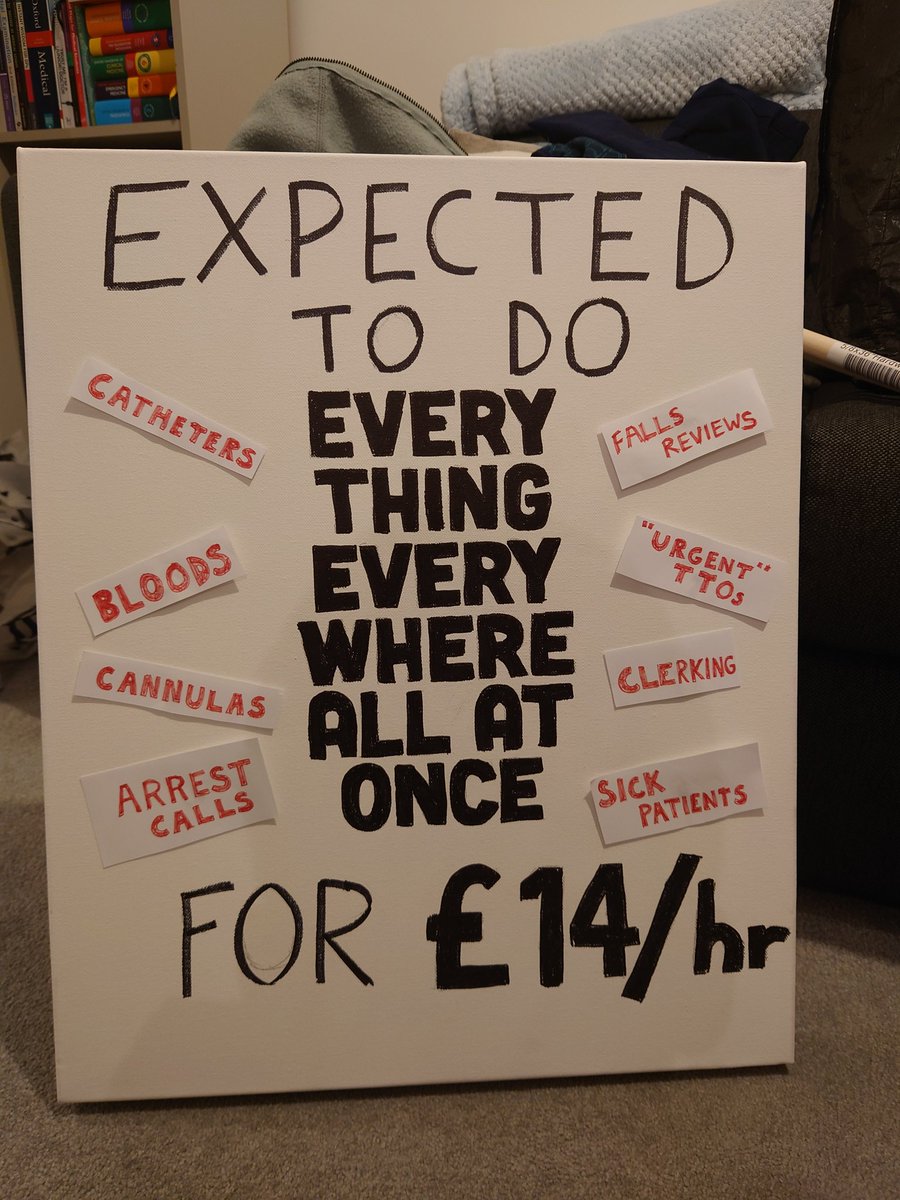 Oxford
Medical
CLINICAL
MEDICINE
EMERGENCY
MEDICINE
EXPECTED
TO DO
EVERY
THING
EVERY
WHERE
ALL AT
ONCE
CATHETERS
BLOODS
CANNULAS
ARREST
CALLS
FALLS
REVIEWS
"URGENT"
TTOs
CLERKING
SICK
PATIENTS
FOR £14/hr